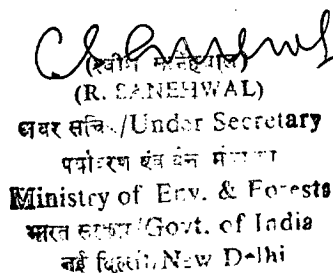 (R. SANEHWAL)
अवर सचिव/Under Secretary
पर्यावरण एवं वन मंत्रालय
Ministry of Env. & Forests
भारत सरकार/Govt. of India
नई दिल्ली/New Delhi